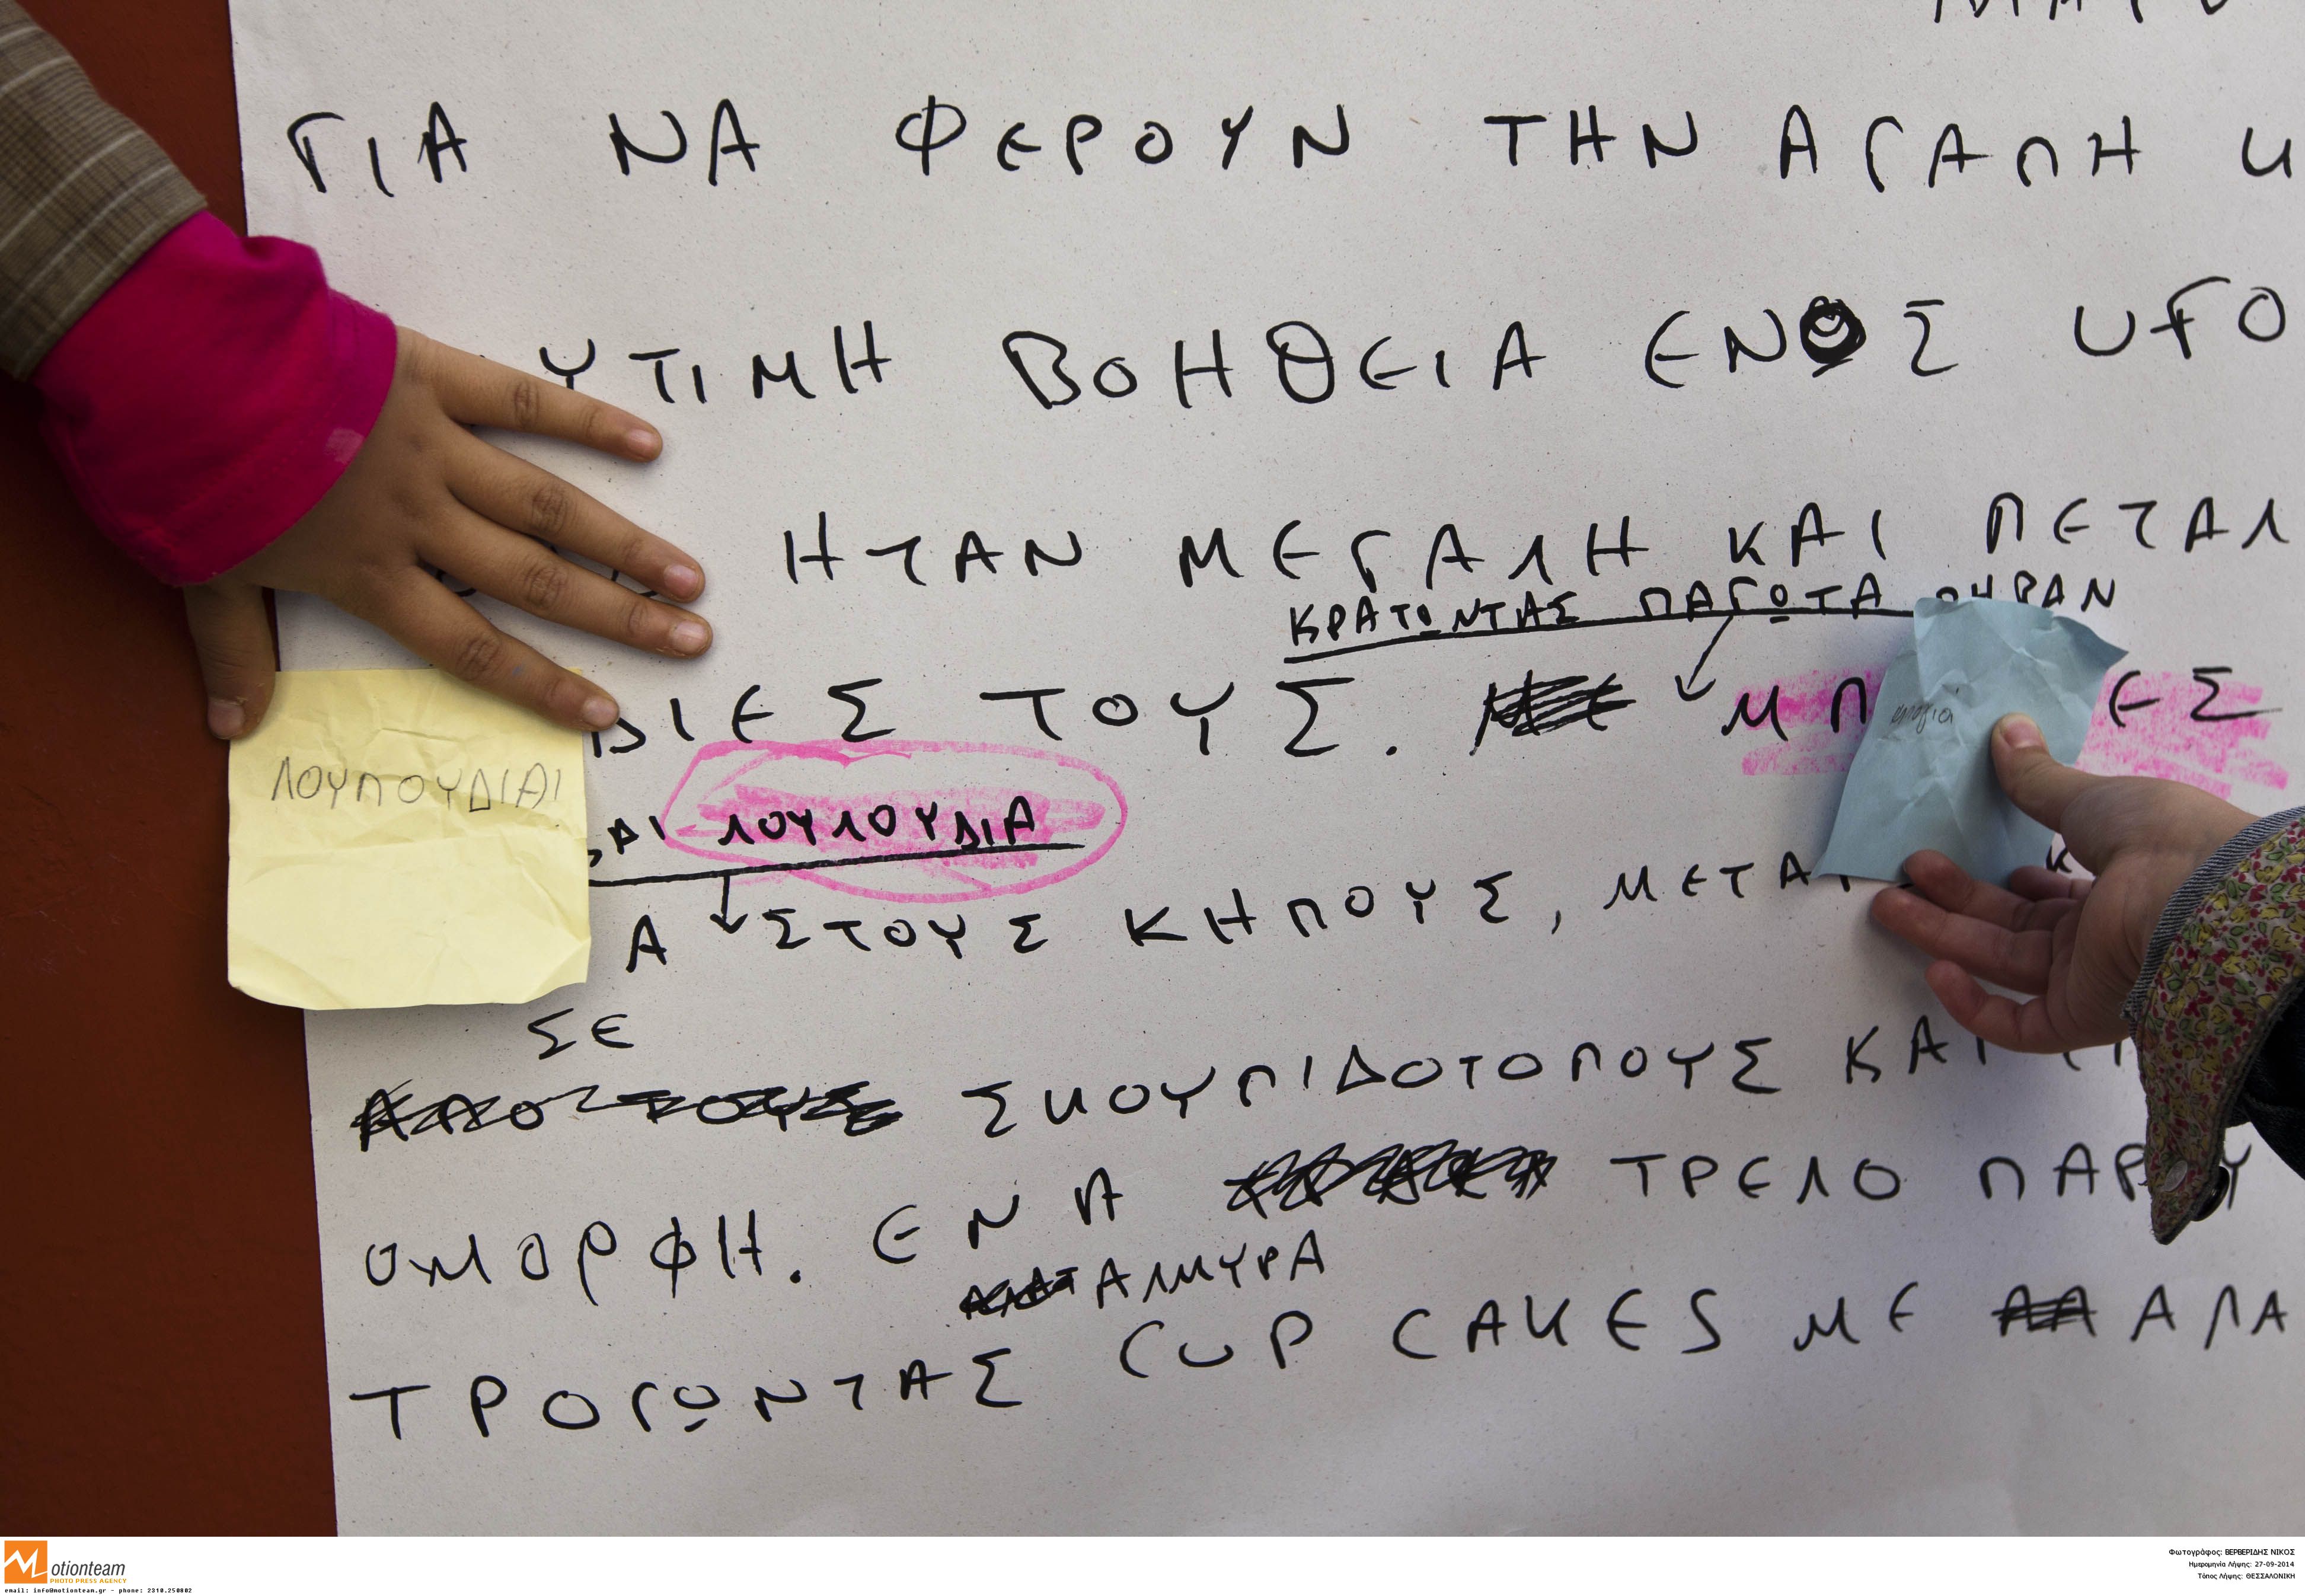 ΓΙΑ ΝΑ ΦΕΡΟΥΝ ΤΗΝ ΑΓΑΠΗ Κ
ΥΤΙΜΗ ΒΟΗΘΕΙΑ ΕΝΟΣ UFO
ΗΤΑΝ ΜΕΓΑΛΗ ΚΑΙ ΠΕΤΑΛ
ΚΡΑΤΩΝΤΑΣ ΠΑΓΩΤΑ ΠΗΡΑΝ
ΔΙΕΣ ΤΟΥΣ. ΜΠ ΕΣ
ΛΟΥΠΟΥΔΙΑΙ
ΑΙ ΛΟΥΛΟΥΔΙΑ
Α ΣΤΟΥΣ ΚΗΠΟΥΣ, ΜΕΤΑ
ΣΕ
ΣΚΟΥΠΙΔΟΤΟΠΟΥΣ ΚΑΙ
ΟΜΟΡΦΗ. ΕΝΑ ΤΡΕΛΟ ΠΑΡ
ΑΛΜΥΡΑ
ΤΡΟΓΩΝΤΑΣ CUP CAKES ΜΕ ΑΛΑ
Motionteam
PHOTO PRESS AGENCY
email: info@motionteam.gr - phone: 2310.250802
Φωτογράφος: ΒΕΡΒΕΡΙΔΗΣ ΝΙΚΟΣ
Ημερομηνία Λήψης: 27-09-2014
Τόπος Λήψης: ΘΕΣΣΑΛΟΝΙΚΗ